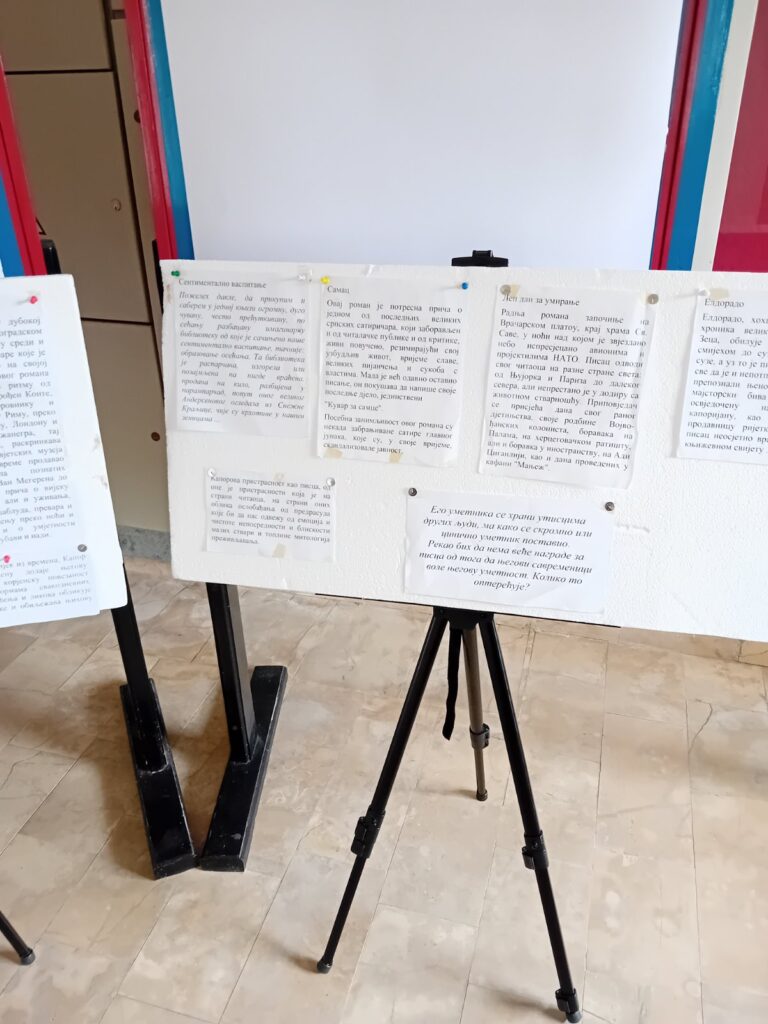 дубокој
оградском
у среди и
аре које је
на својој
овог романа
ритму од
ођен Конте,
ровнику и
Риму, преко
, Лондону и
жанегра, тај
раскринкава
јетских музеја
време продавао
ла познатих
Ван Мегерено до
прича о вијеку
али и уживања,
аблуда, превара и
ену преко ноћи и
о умјетности
убави и нади.
јек из времена. Капор
Сентиментално васпитање
Пожелех дакле, да прикупим и
саберем у једној књизи огромну, дуго
чувану, често прећуткивану, по
сећању разбацану шмагларску
библиотеку од које је сачињено наше
сентиментално васпитање, тачније:
образовање осећања. Та библиотека
је растурена, изгорела или
позајмљена па нигде враћена,
продана на кило, разбијена у
парампарчад, попут оног великог
Андерсеновог огледала из Снежне
Краљице, чије су крхотине у нашим
зеницама...
Самац
Овај роман је потресна прича о
једном од последњих великих
српских сатиричара, који заборављен
и од читалачке публике и од критике,
живи повучено, резимирајући свој
узбудљив живот, вријеме славе,
великих вијанчења и сукоба с
властима. Мада је већ одавно оставио
писање, он покушава да напише своје
последње дјело, јединствени
"Кувар за самце"
Посебна занимљивост овог романа су
некада забрањиване сатире главног
јунака, које су, у своје вријеме,
скандализовале јавност.
Леп дан за умирање
Радња романа започиње на
Врачарском платоу, крај храма Св.
Саве, у ноћи над којом је звјездано
небо испресјецано авионима и
пројектилима НАТО. Писац одводи
свог читаоца на разне стране света:
од Њујорка и Париза до далеког
севера, али непрестано је у додиру са
животном стварношћу. Приповједач
се присјећа дана свог раног
дјетињства, своје родбине Војво-
ђанских колониста, боравака на
Палама, на херцеговачком ратишту,
али и боравка у иностранству, на Ади
Циганлији, као и дана проведених у
кафани "Мањеж".
Елдорадо
Елдорадо, хох
хроника великог
Зеца, обилује
смијехом до су
сузе, а уз то је п
све да је и непотп
препознали њено
мајсторски бива
освједочену на
капоријану, као
продавницу ријетк
писац неосјетно вра
књижевном свијету
Капорова пристрасност као писца, од
оне је пристрасности која је на
страни читаоца, на страни оних
облика ослобађања од предрасуда
које би да нас одвежу од емоција и
чистоте непосредности и блискости
малих ствари и топлине митологија
преживљавања.
Его уметника се храни утисцима
других људи, ма како се скромно или
цинично уметник поставио.
Рекао бих да нема веће награде за
писца од тога да његови савременици
воле његову уметност. Колико то
оптерећује?